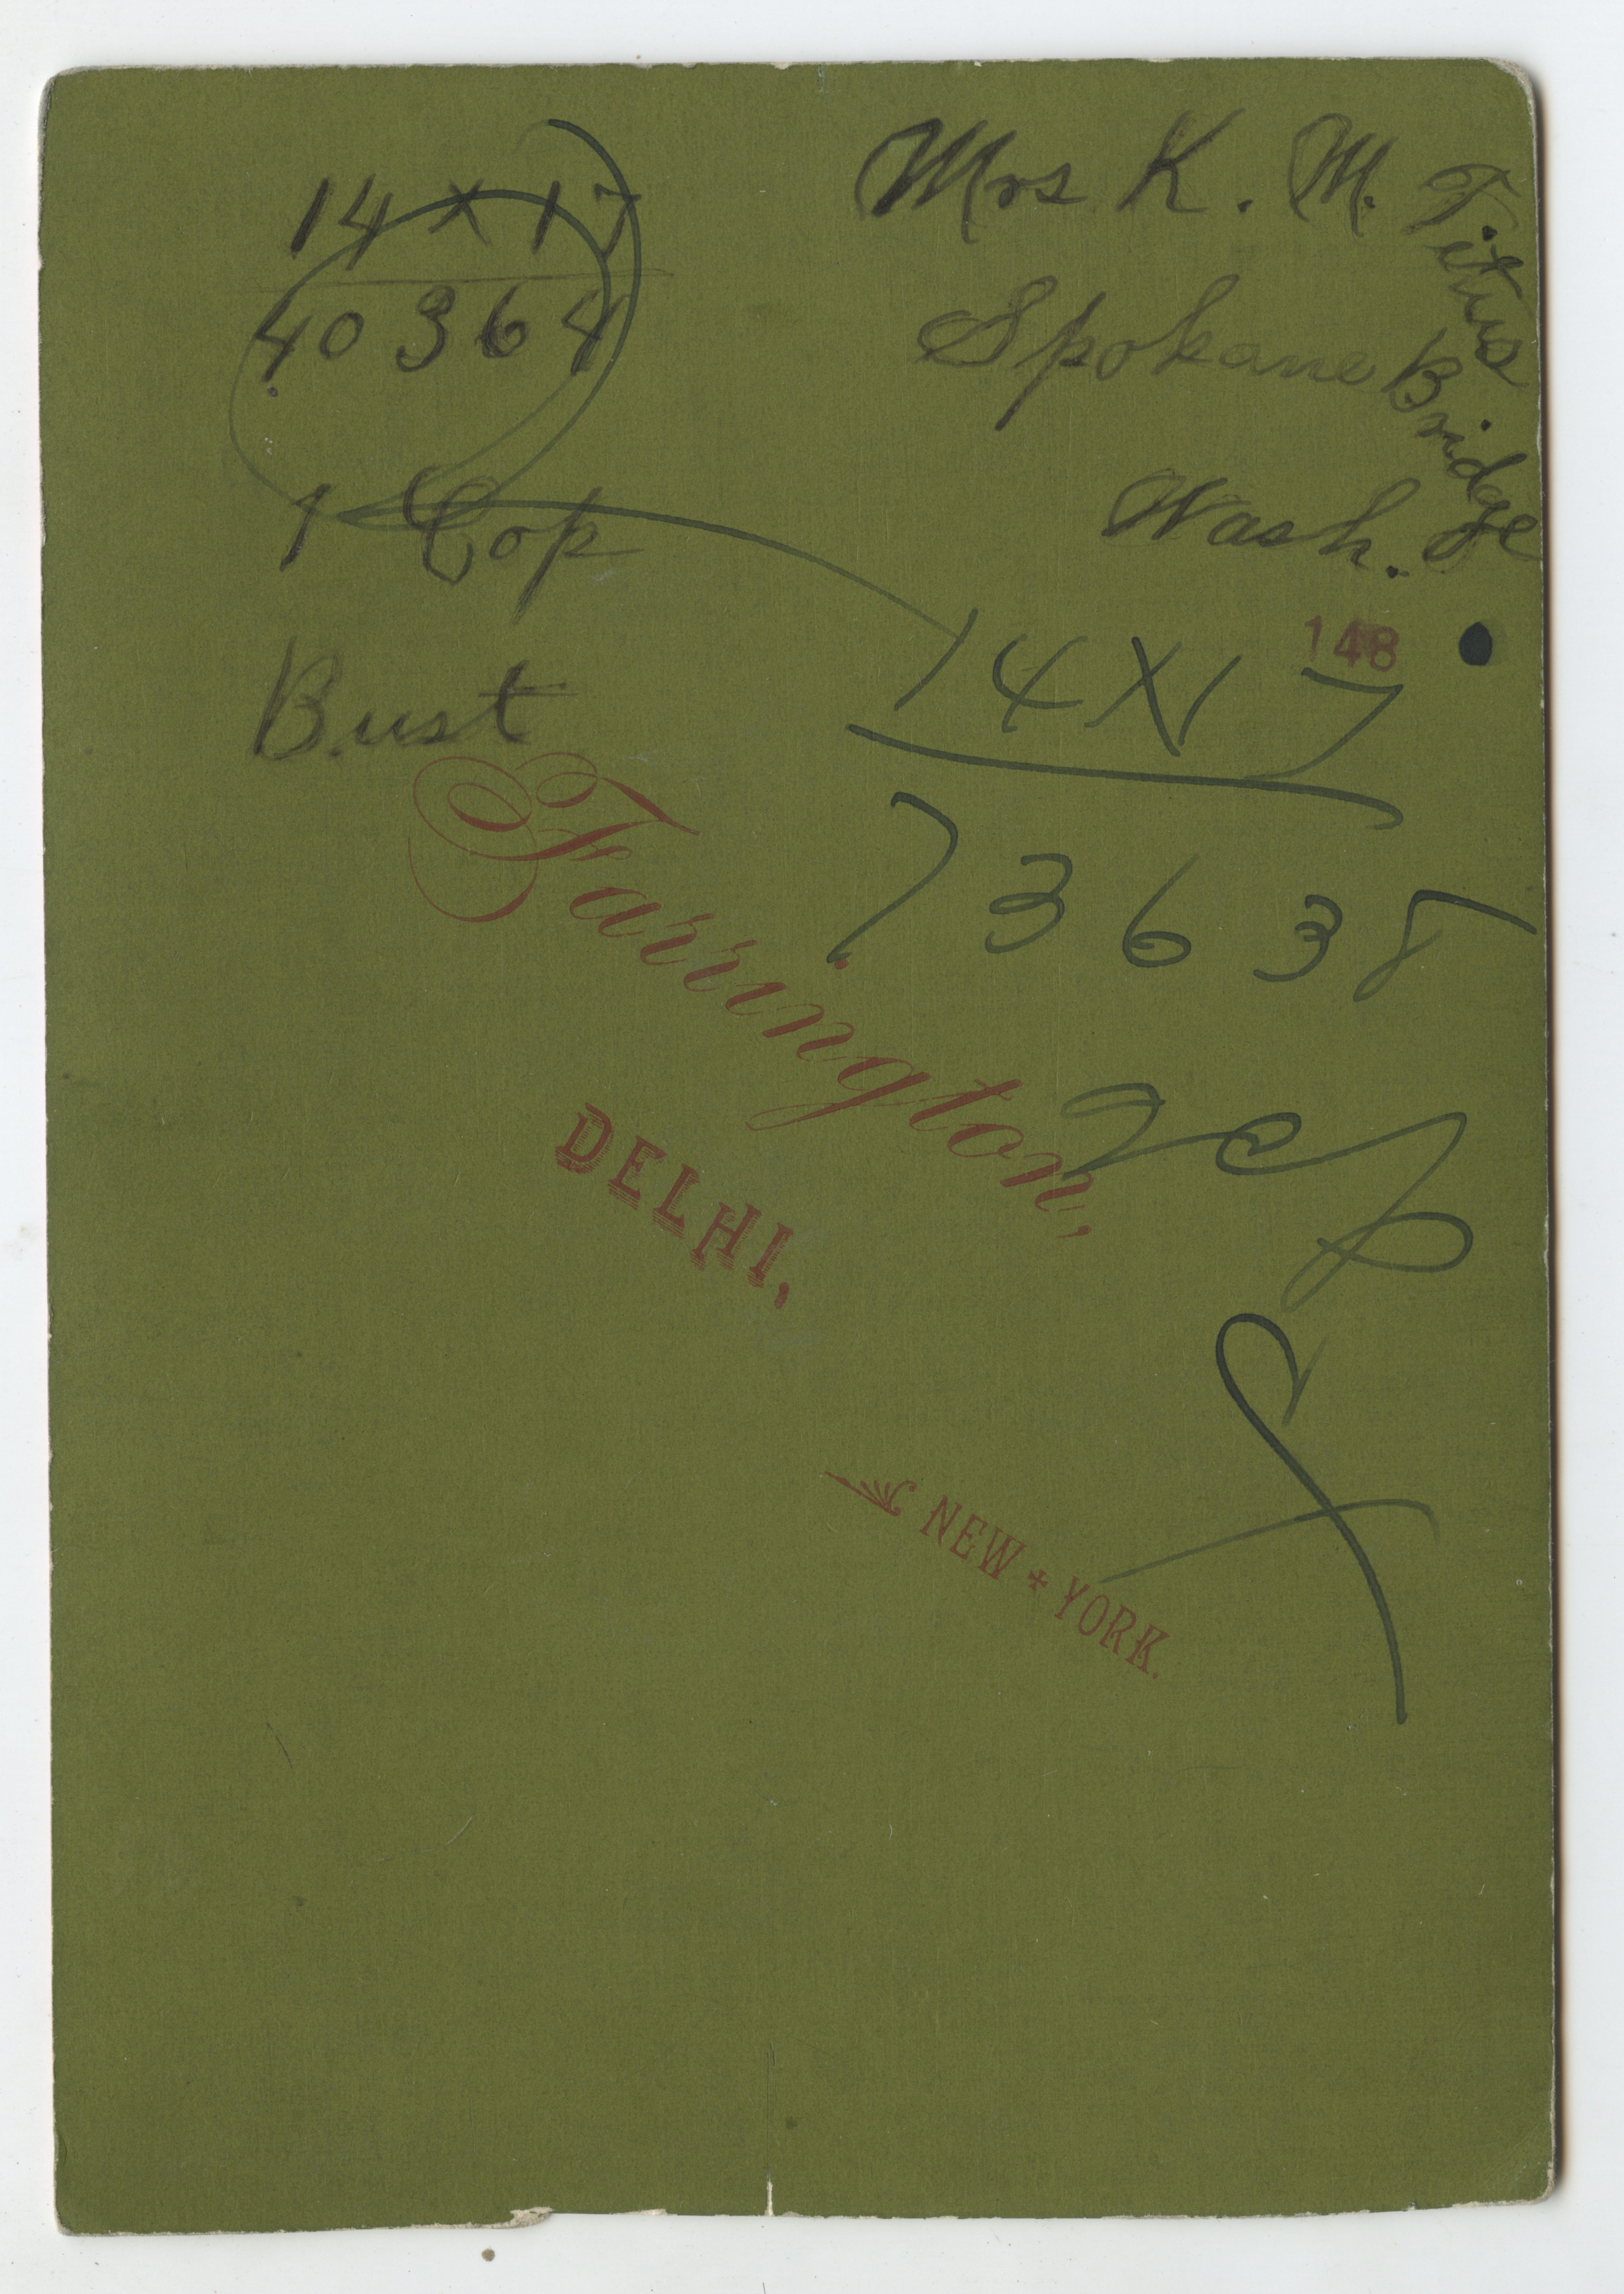 Mrs K. M. Titus
Spokane Bridge
Wash.
14 x 17
40364
1 Cop
Bust
148
14 X 17
73638
Farrington,
DELHI,
NEW + YORK.